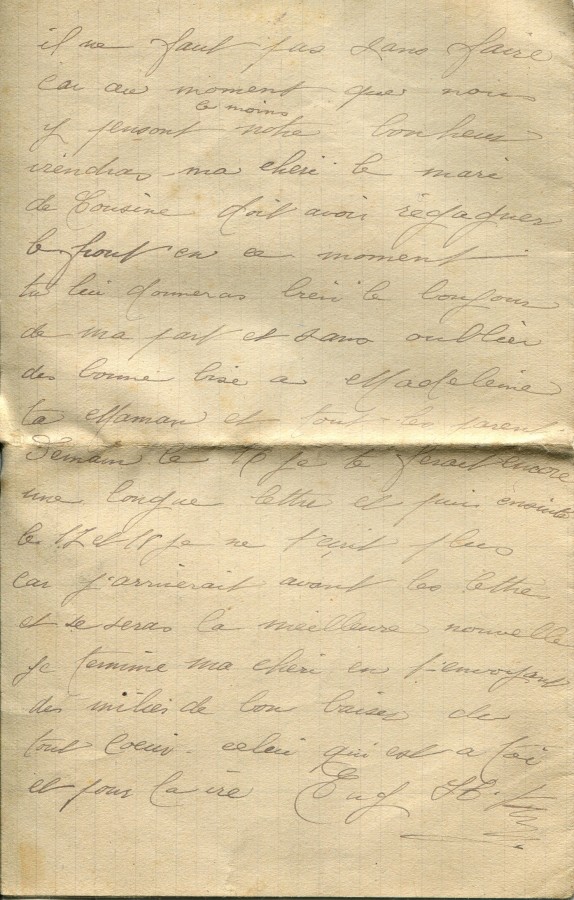 il ne faut pas sans faire
car au moment que nous
le moins
y pensont notre bonheur
viendras ma cheri le mari
de Cousine doit avoir régagner
le front en ce moment
tu lui donneras bien le bonjour
de ma part et sans oublier
des bonne bise a Madeleine
ta Maman et tout les parent
Demain le 16 je te ferait encore
une longue lettre et puis ensuite
le 17 et 18 je ne t'ecrit plus
car j'arriverait avant les lettre
et se seras la meilleure nouvelle
je termine ma cheri en t'envoyant
des milier de bon baiser du
tout Coeur celui qui est a toi
et pour la vie Eug